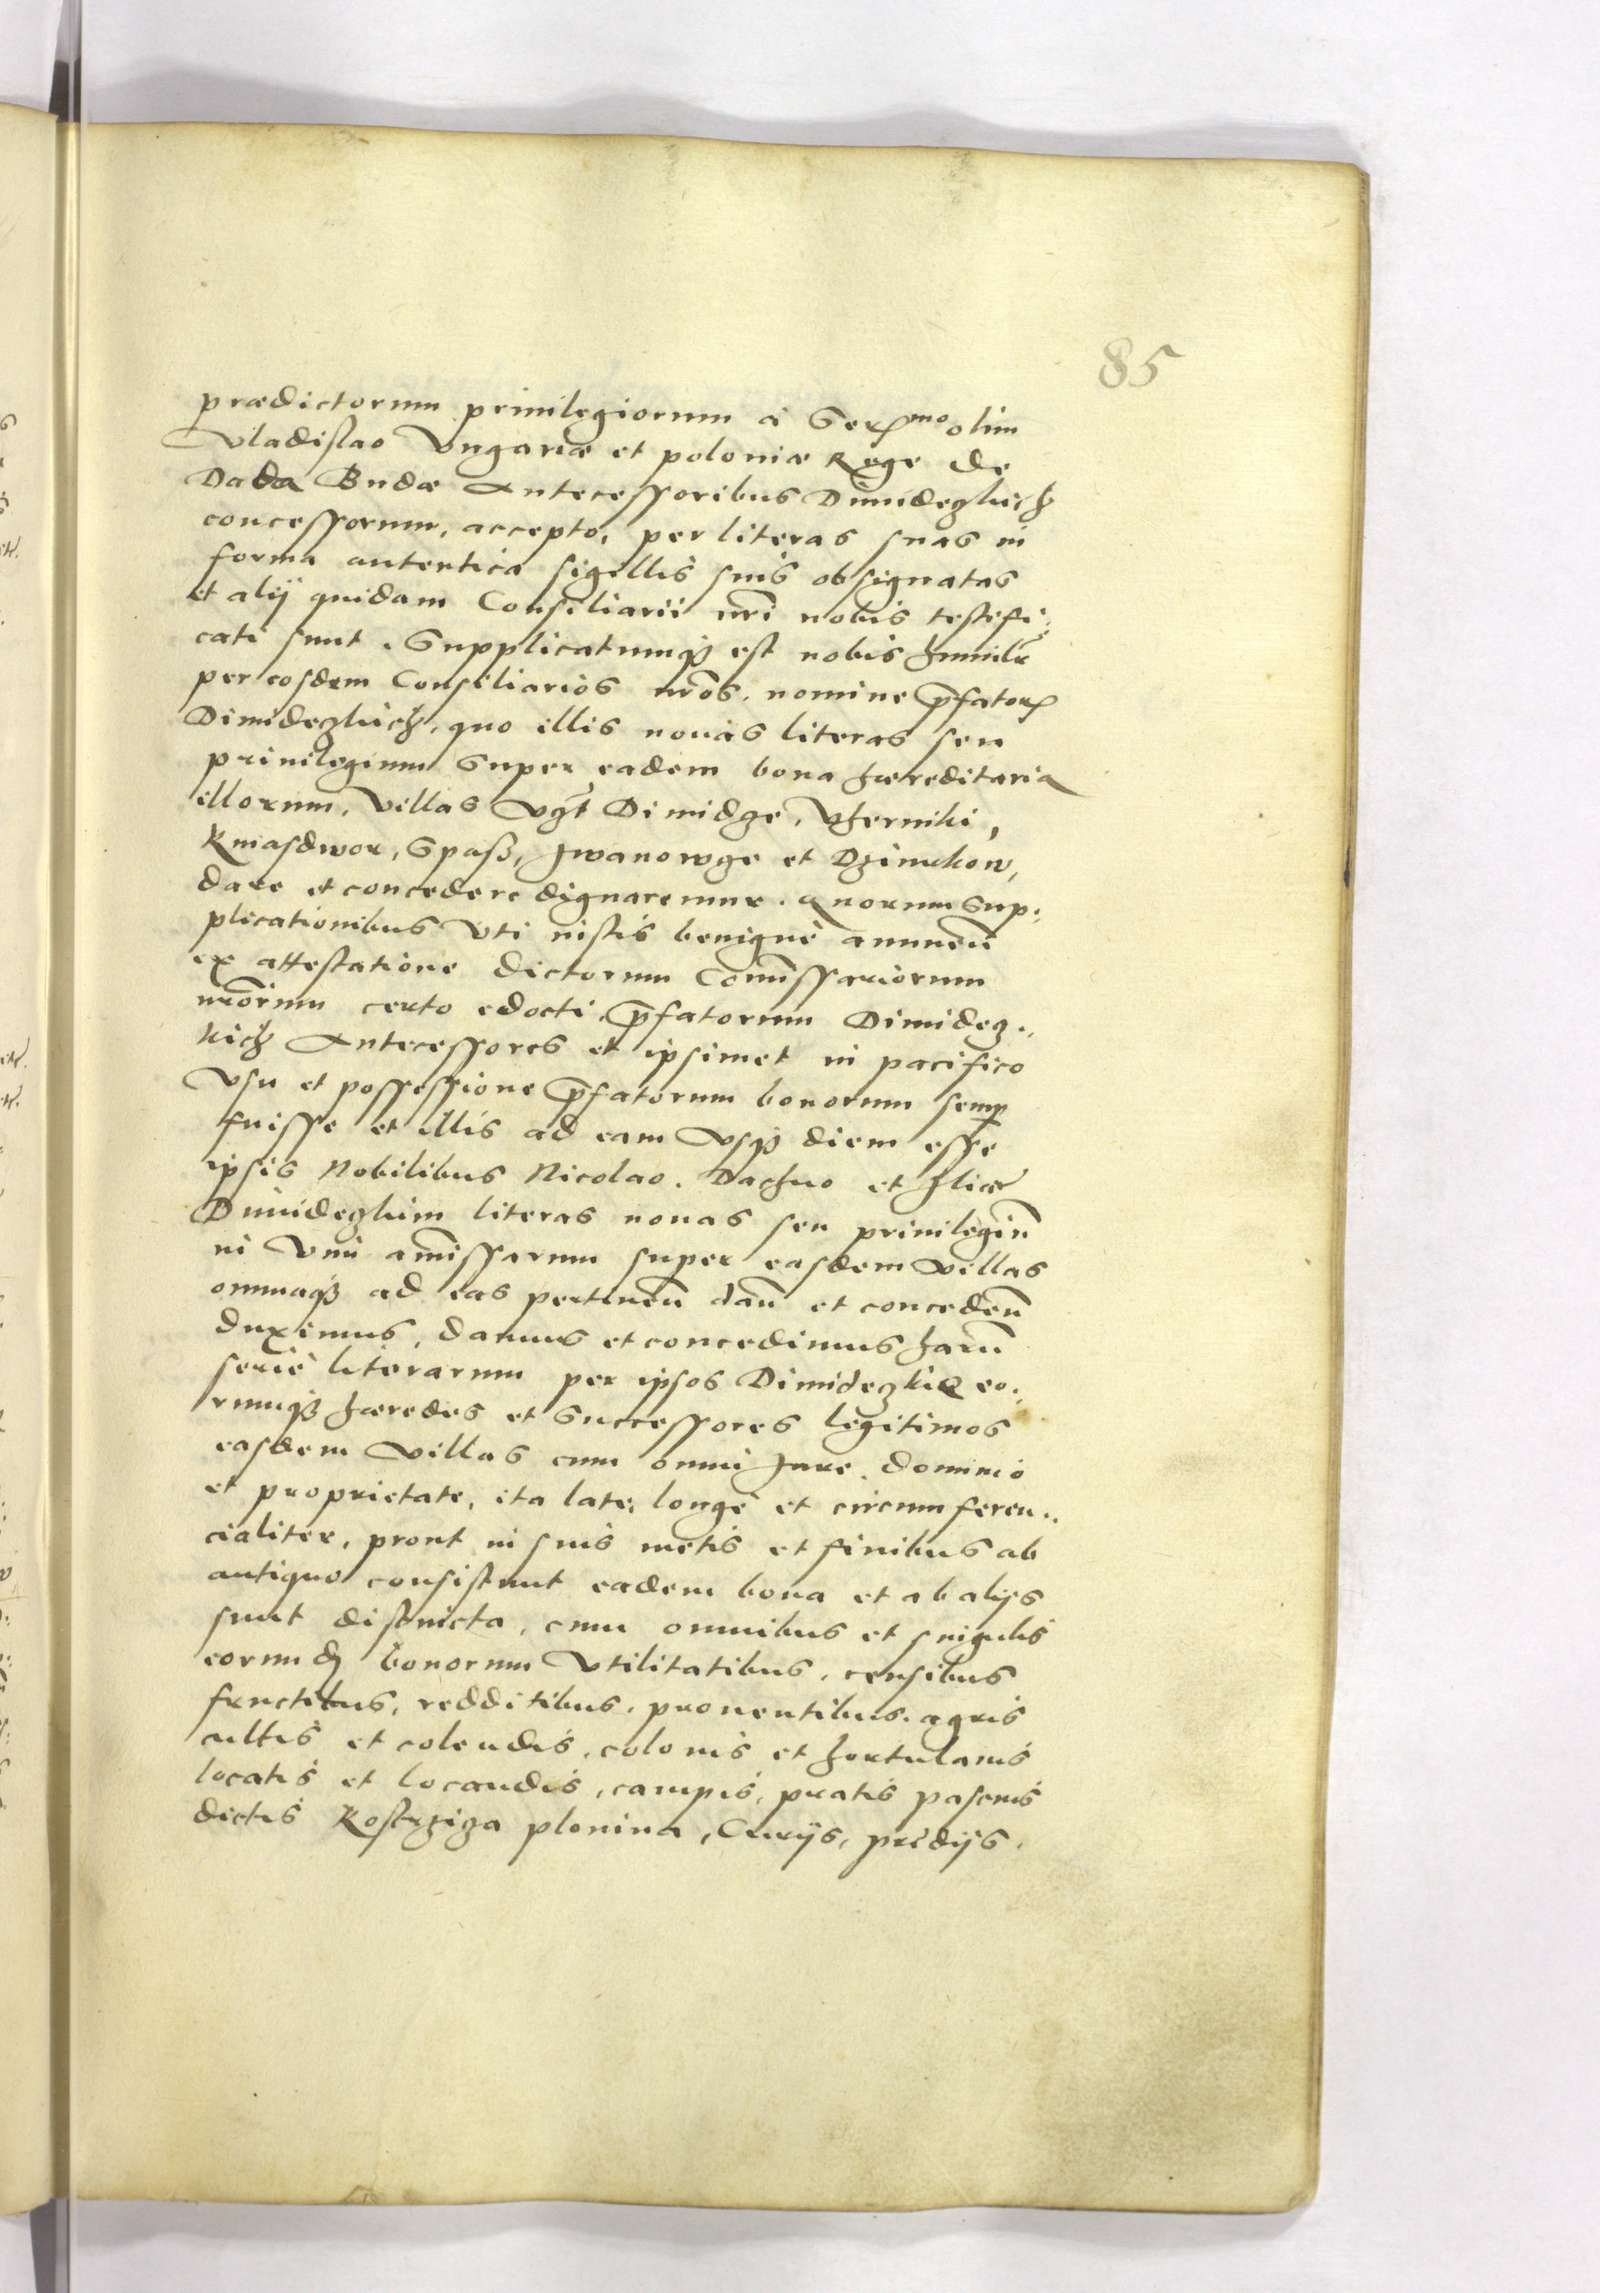 85
prædictorum priuilegiorum à Ser:mo olim
Vladislao Vngariæ et poloniæ Rege De
Dada Budæ Antecessoribus Dimidezkich
concessorum, accepto, per literas suas in
forma autentica sigillis suis obsignatas
et alij quidam Consiliarii nri nobis testifi:
cati sunt. Supplicatumq3 est nobis humilr
per eosdem Consiliarios nros. nomine pfator
Dimidezkich, quo illis nouas literas seu
priuilegium Super eadem bona hæreditaria
illorum, villas vgt Dimidze, Vherniki,
Kniasdwor, Spass, Jwanowze et Dzimkow,
dare et concedere dignaremur. Quorum Sup:
plicationibus vti iustis benignè annuen
ex attestatione dictorum Comissariorum
nrorum certo edocti pfatorum Dimidez:
kich Antecessores et ipsimet in pacifico
vsu et possessione pfatorum bonorum semp
fuisse et illis ad eam vsq3 diem esse
ipsis Nobilibus Nicolao. Dachno et Jlice
Dimidezkim literas nouas seu priuilegiu
ni vim amissarum super easdem villas
omniaq3 ad eas pertinen dan et conceden
duximus, damus et concedimus haru
serie literarum per ipsos Dimidezkie eo:
rumq3 hæredes et Successores legitimos
easdem villas cum omni Jure. dominio
et proprietate, ita late, longè et circumferen:
cialiter, prout in suis metis et finibus ab
antiquo consistunt eadem bona et ab alijs
sunt distincta, cum omnibus et singulis
eorumd bonorum vtilitatibus, censibus
fructibus, redditibus, prouentibus. agris
cultis et colendis, colonis et hortulanis
locatis et locandis, campis, pratis pascuis
dictis Kostrziza plonina, Curijs, predijs,